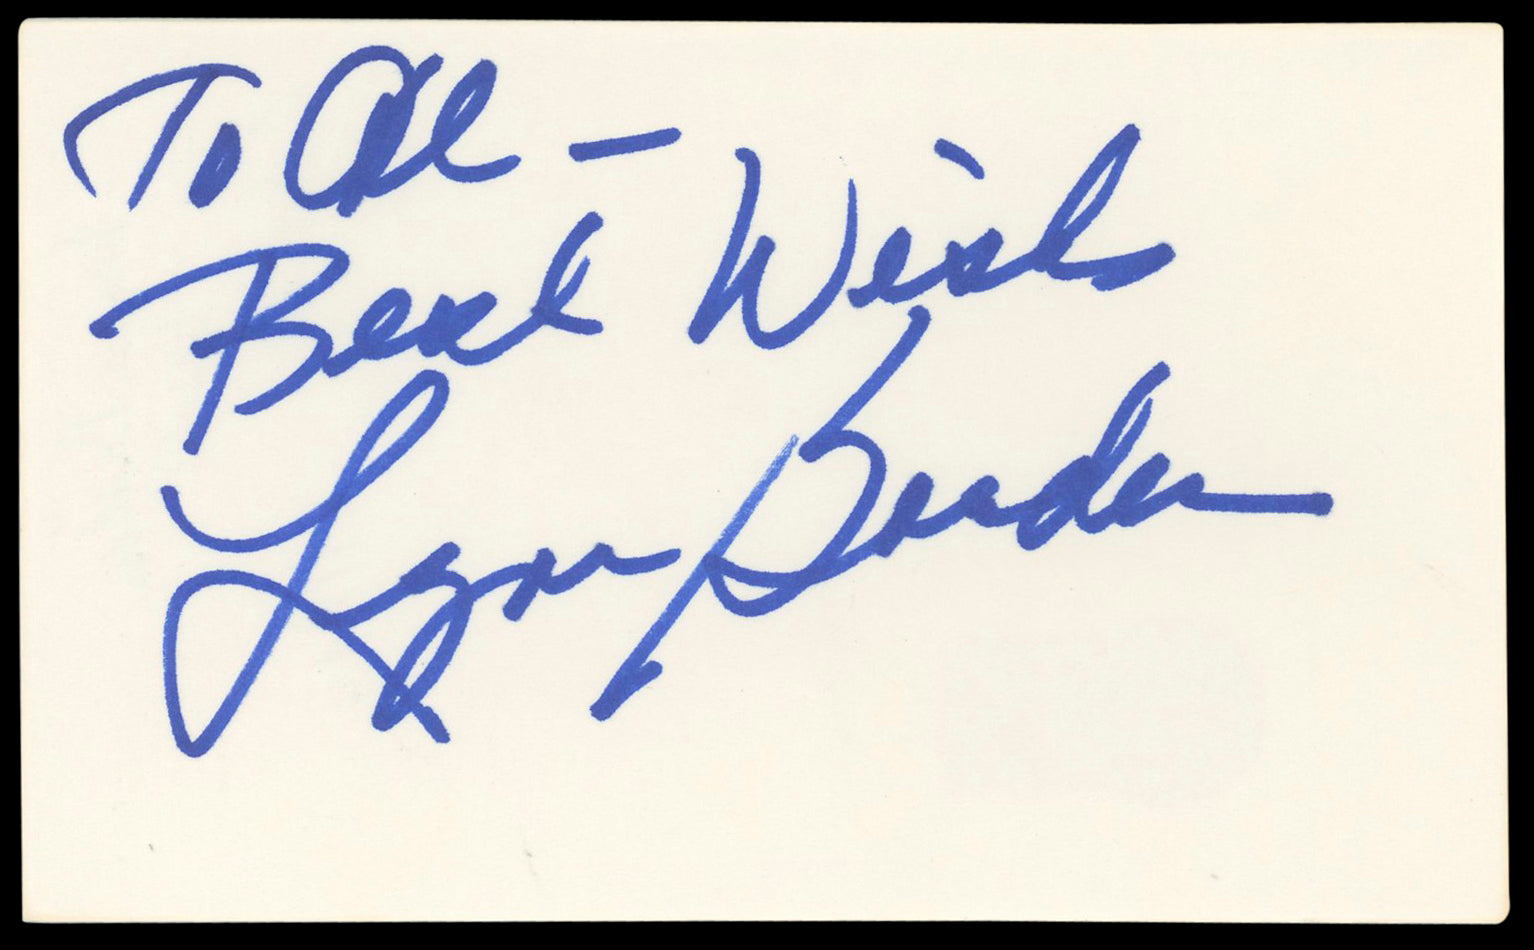 To Al —
Best Wishes
Lynn Borden